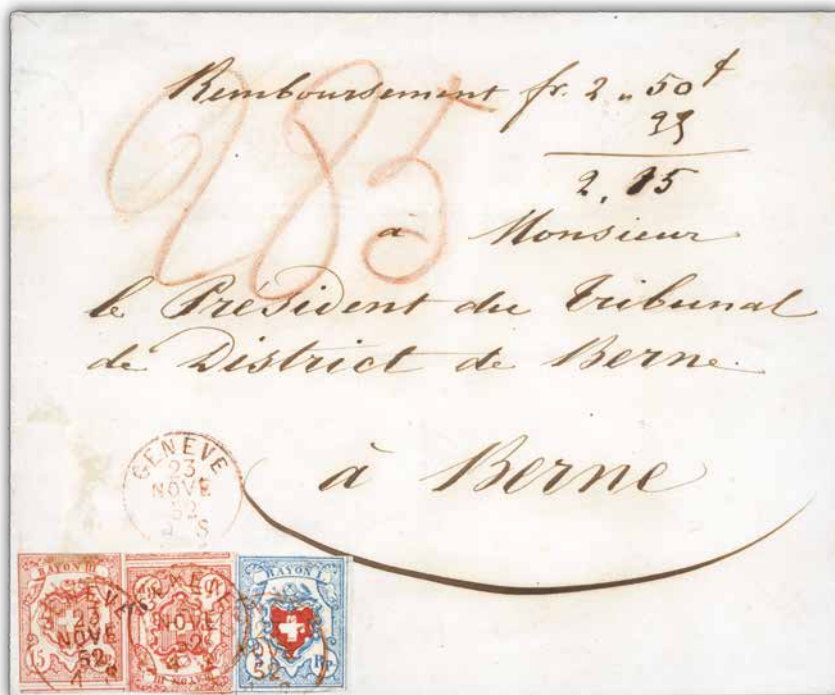 Remboursement fr. 2 „ 50
2. 85
285
à Monsieur
le Président du Tribunal
de District de Berne.
à Berne
GENEVE
23
NOVE
52
S
RAYON III
GENEVE
23
NOVE
52
NOVE
52
RAYON I
52
Rp.